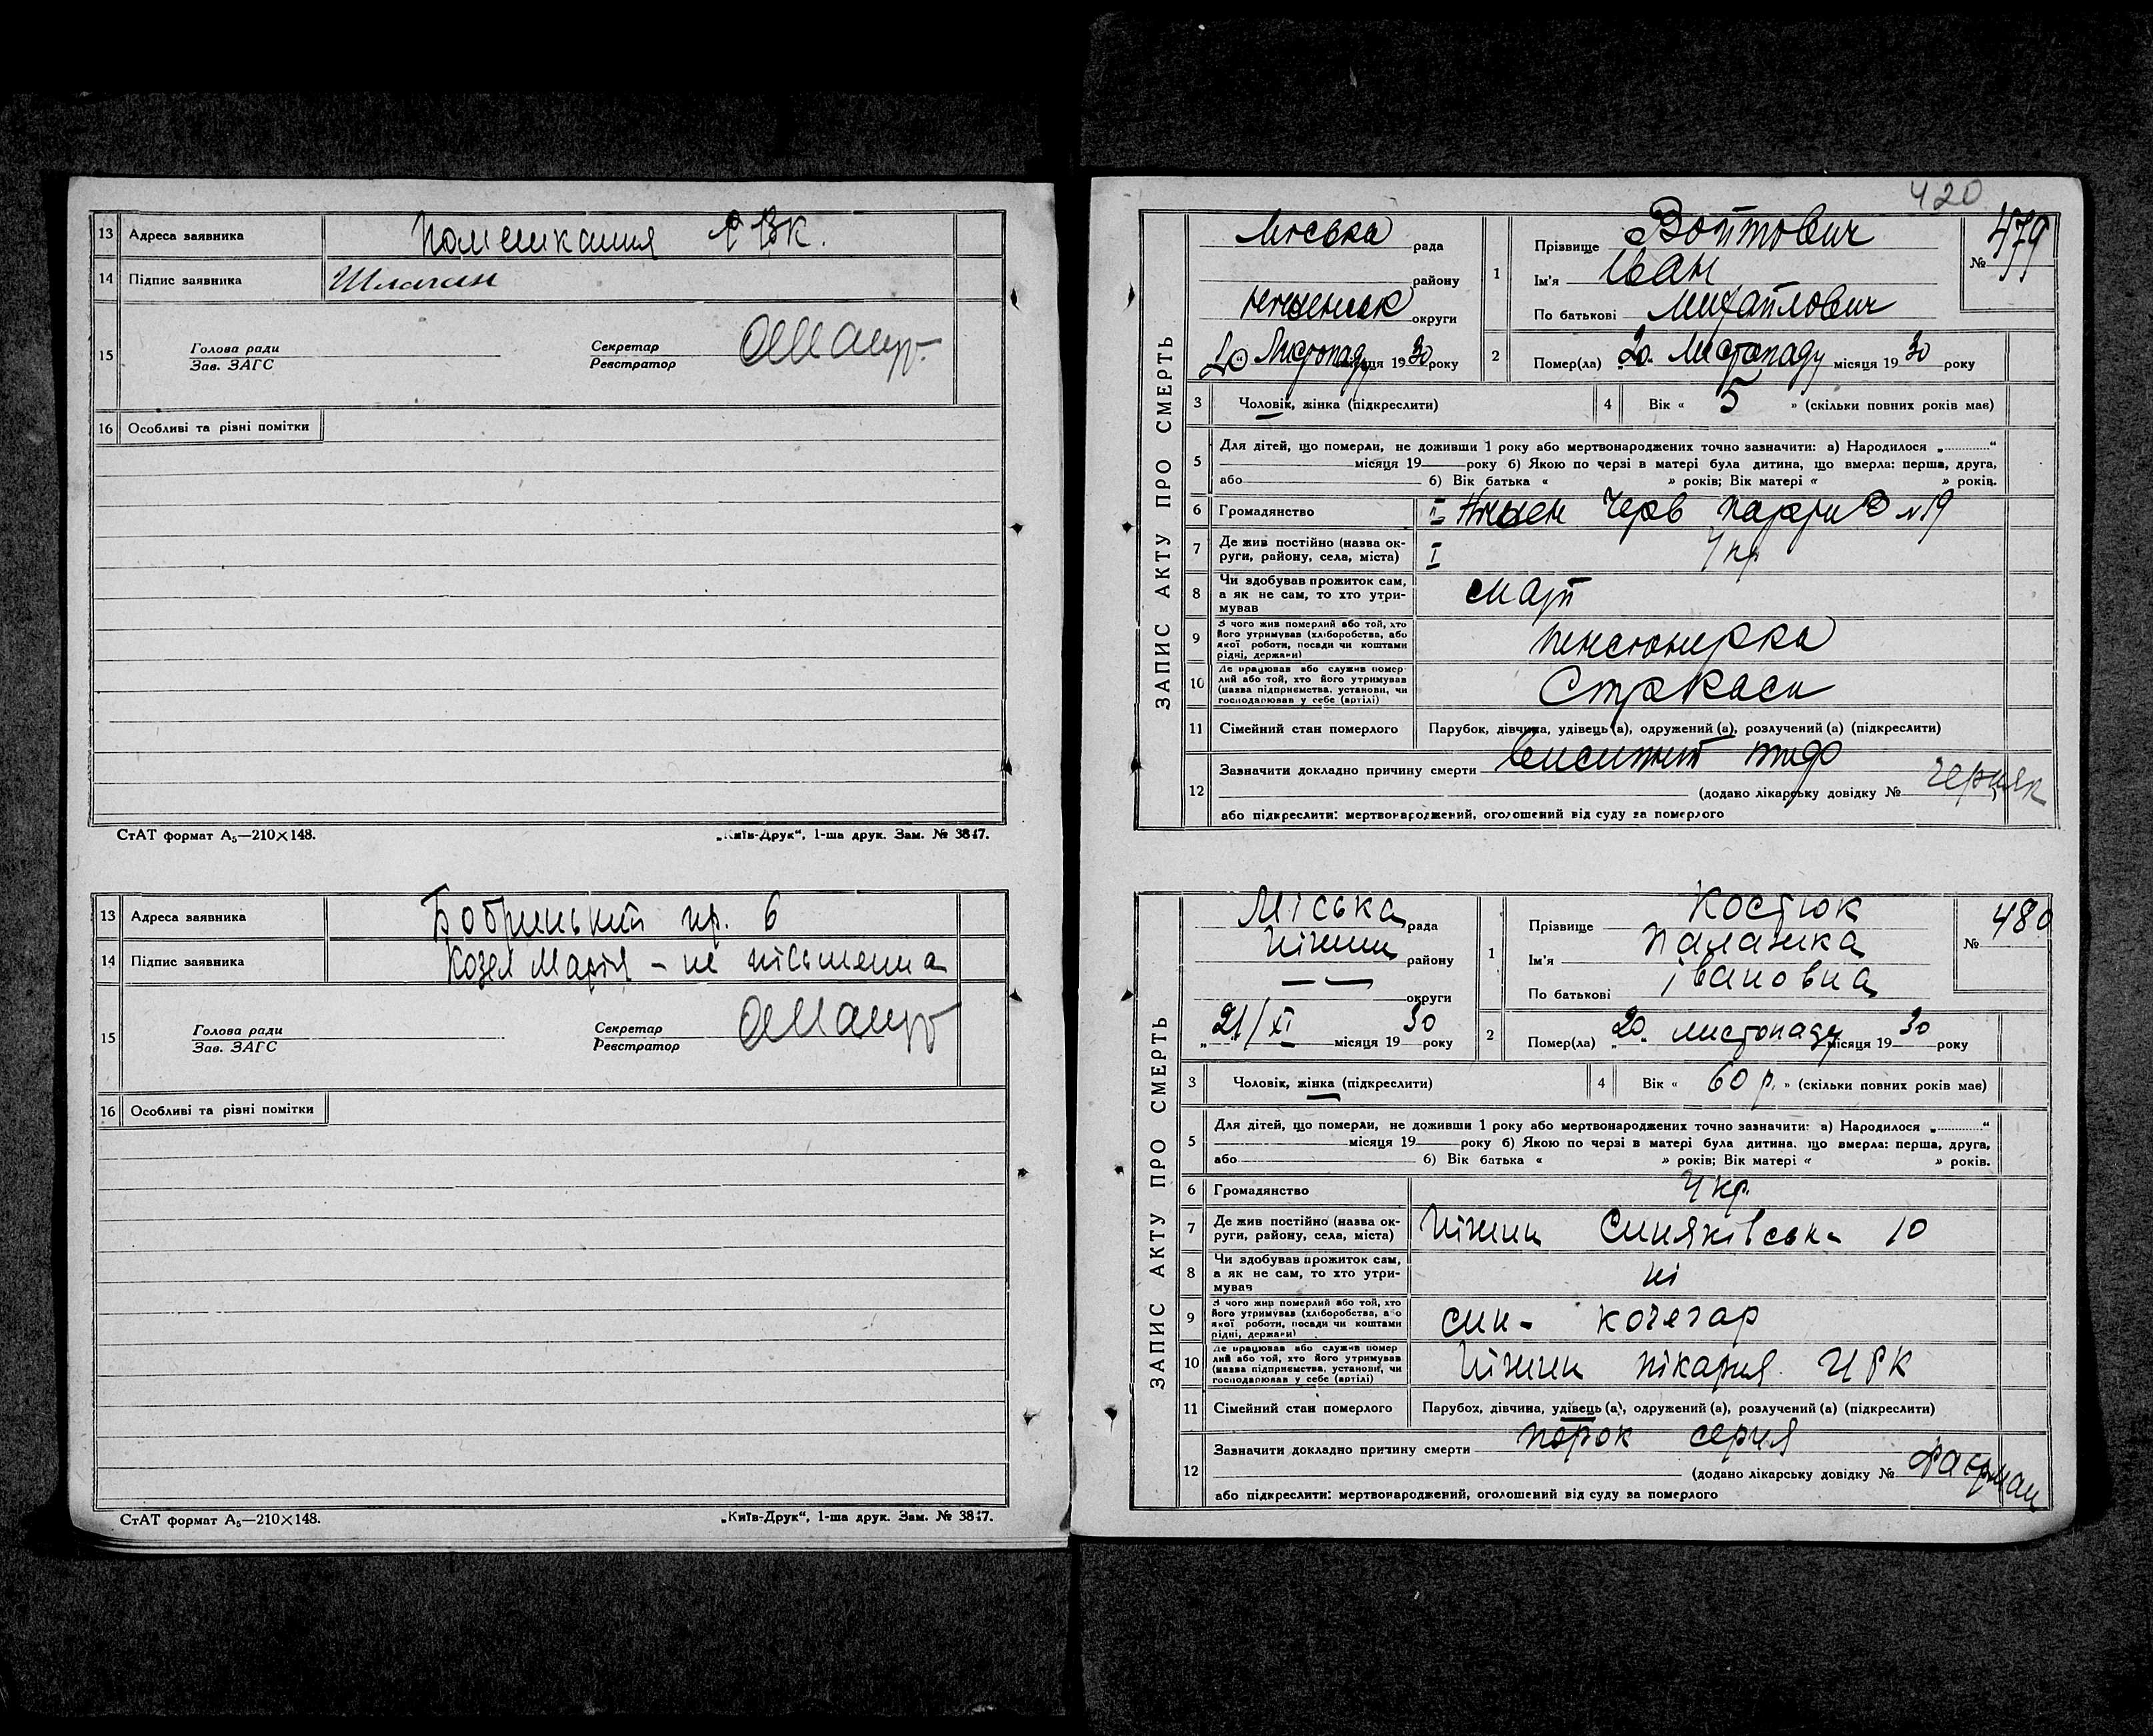 13 Адреса заявника Помешкання РВК.
14 Підпис заявника
15 Голова ради
Зав. ЗАГС
Секретар
Реєстратор
16 Особливі та різні помітки
СтАТ формат А₅—210×148. „Київ-Друк“, 1-ша друк. Зам. № 3847.
13 Адреса заявника Бобрицький пр. 6
14 Підпис заявника Козел Марія – не пісьменна
15 Голова ради
Зав. ЗАГС
Секретар
Реєстратор
16 Особливі та різні помітки
СтАТ формат А₅—210×148. „Київ-Друк“, 1-ша друк. Зам. № 3847.
420
ЗАПИС АКТУ ПРО СМЕРТЬ
Міська рада
району
округи
20 Листопаду місяця 1930 року
1 Прізвище Войтович
Ім'я Іван
По батькові Михайлович
№ 479
2 Помер(ла) „20“ Листопаду місяця 1930 року
3 Чоловік, жінка (підкреслити)
4 Вік « 5 » (скільки повних років має)
5 Для дітей, що померли, не доживши 1 року або мертвонароджених точно зазначити: а) Народилося „..........“
місяця 19 року б) Якою по черзі в матері була дитина, що вмерла: перша, друга,
або б) Вік батька « » років; Вік матері « » років.
6 Громадянство Черв №19
7 Де жив постійно (назва округи, району, села, міста) Укр
8 Чи здобував прожиток сам, а як не сам, то хто утримував мати
9 З чого жив померлий або той, хто його утримував (хліборобства, або якої роботи, посади чи коштами рідні, держави) пенсіонерка
10 Де працював або служив померлий або той, хто його утримував (назва підприємства, установи, чи господарював у себе (артілі) Страхкаси
11 Сімейний стан померлого Парубок, дівчина, удівець (а), одружений (а), розлучений (а) (підкреслити)
12 Зазначити докладно причину смерти висипний тиф
(додано лікарську довідку № Черняк
або підкреслити: мертвонароджений, оголошений від суду за померлого
ЗАПИС АКТУ ПРО СМЕРТЬ
Міська рада
Ніжин району
— — округи
„21/XI місяця 1930 року
1 Прізвище Костюк
Ім'я Палажка
По батькові івановна
№ 480
2 Помер(ла) „20“ листопаду місяця 1930 року
3 Чоловік, жінка (підкреслити)
4 Вік « 60 р. » (скільки повних років має)
5 Для дітей, що померли, не доживши 1 року або мертвонароджених точно зазначити: а) Народилося „..........“
місяця 19 року б) Якою по черзі в матері була дитина, що вмерла: перша, друга,
або б) Вік батька « » років; Вік матері « » років.
6 Громадянство Укр.
7 Де жив постійно (назва округи, району, села, міста) Ніжин Синяківська 10
8 Чи здобував прожиток сам, а як не сам, то хто утримував ні
9 З чого жив померлий або той, хто його утримував (хліборобства, або якої роботи, посади чи коштами рідні, держави) син - кочегар
10 Де працював або служив померлий або той, хто його утримував (назва підприємства, установи, чи господарював у себе (артілі) Ніжин пікарня ЦРК
11 Сімейний стан померлого Парубок, дівчина, удівець (а), одружений (а), розлучений (а) (підкреслити)
12 Зазначити докладно причину смерти порок серця
(додано лікарську довідку №
або підкреслити: мертвонароджений, оголошений від суду за померлого